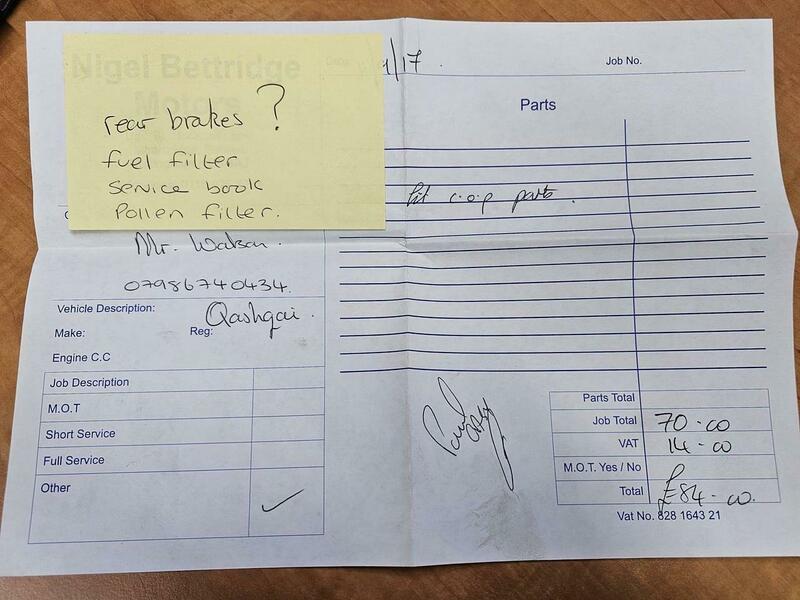 Nigel Bettridge
Motors
Date
/17
Job No.
rear brakes ?
fuel filter
Service book
Pollen filter.
Parts
fit c.o.p parts.
Mr. Watson.
07986740434.
Vehicle Description:
Qashqai.
Make:
Reg:
Engine C.C
Job Description
M.O.T
Short Service
Full Service
Other
✓
Parts Total
Job Total 70-00
VAT 14-00
M.O.T. Yes / No
Total £84-00.
Vat No. 828 1643 21